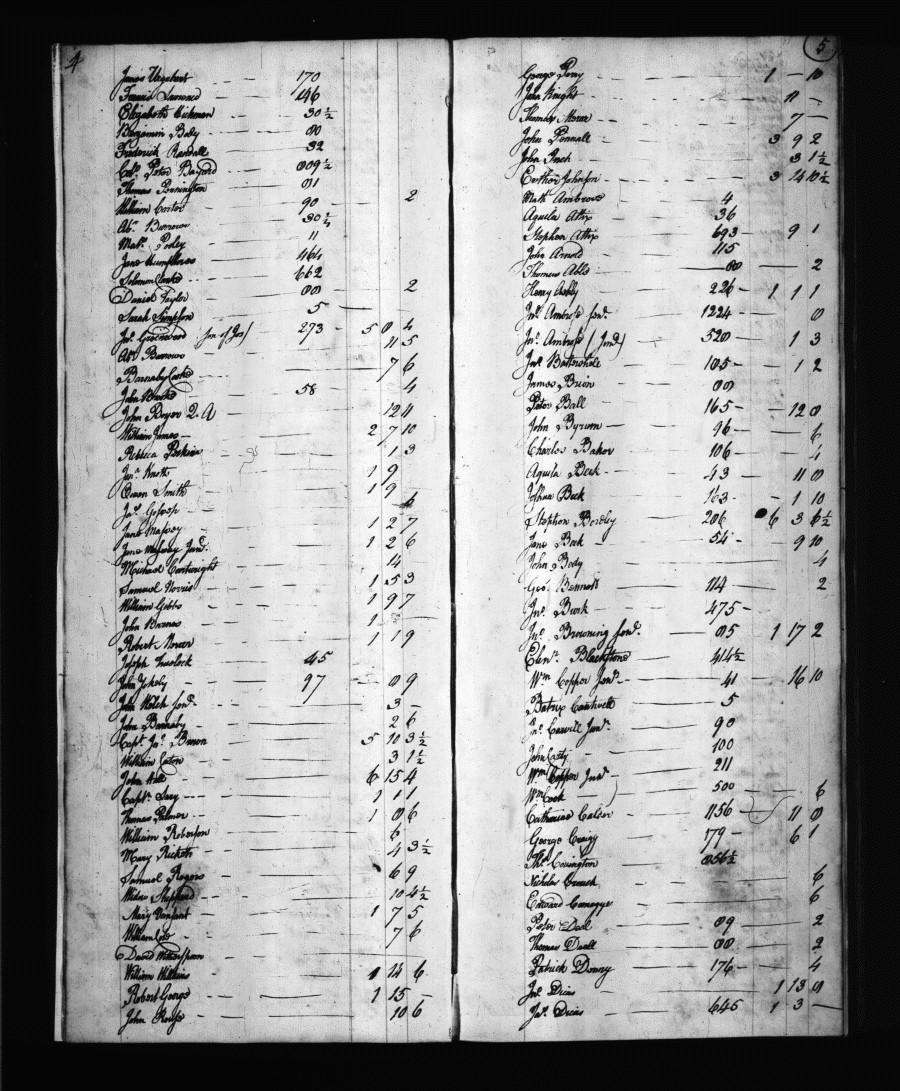 4
James Urquhart 170
Francis Lawrence 146
Elizabeth Hickman 30½
Benjamin Body 80
Frederick Randall 32
Colo. Peter Bayard 809½
Thomas Pennington 81
William Carter 90 2
Abm. Burrows 30½
Mattw. Posley 11
Jane Humphress 464
Solomon Clarke 662
Daniel Taylor 80 2
Sarah Simpson 5
Jos. Greenwood Son of Jos) 273 5 8 4
Abm. Burrows 11 5
Barnaby Corke 7 6
John Burke 58 4
John Boyer 2. A 12 4
William James 2 7 10
Rebecca Perkins 1 3
Jona. North 1 9
Owen Smith 1 9
Jas. Gossop 6
Jane Massey 1 2 7
Jane Massey Junr. 1 2 6
Michael Cartwright 14
Samuel Norris 1 5 3
William Gibbs 1 9 7
John Barnes 1 –
Robert Mercer 1 1 9
Joseph Truelock 45
John Yokely 97 8 9
John Welch senr. 3 –
John Barnaby 2 6
Capt. Jno. Brown 5 10 3½
William Eaton 3 1½
John Hall 6 15 4
Captn. Gray 1 1 1
Thomas Palmer 1 8 6
William Roberson 6
Mary Ricketts 4 3½
Samuel Rogers 6 9
Widow Sheppard 10 4½
Mary Vansant 1 7 5
William Cole 7 6
David Witherspoon
William Wilkins 1 14 6
Robert George 1 15 –
John Rouse 10 6
5
George Perry 1 – 10
John Knight 11 –
Thomas Morse 7 –
John Pennall 3 9 2
John Inch 3 1½
Easther Johnson 3 14 10½
Mattw. Ambrows 4
Aquila Attix 36
Stephen Attix 693 9 1
John Arnold 115
Thomas Able 80 2
Henry Ashly 226 1 1 1
Jno. Ambross senr. 1224 8
Jno. Ambross (Junr) 520 1 3
Jack Battershale 105 1 2
James Brion 80
Peter Ball 165 12 8
John Byrum 96 6
Charles Baker 106 4
Aquila Beck 43 11 8
Joshua Beck 163 1 10
Stephen Bordley 206 6 3 6½
Jane Beck 54 9 10
John Body 4
Geo. Bennett 114 2
Jno. Burk 475
Jno. Browning senr. 85 1 17 2
Ebenr. Blackstone 414½
Wm. Copper senr. 41 16 10
Batrix Cantwell 5
Jno. Carvill Junr. 90
John Coity 100
Wm. Copper Junr. 211
Wm. Cook 500 6
Catharine Calder 1156 11 8
George Craigy 179 6 1
Thos. Covington 856½
Nicholas Crouch 6
Edward Carnagye 6
Peter Dail 89 2
Thomas Daall 80 2
Patrick Denny 176 4
Jno. Dicas 1 13 9
Jas. Dicas 645 1 3 –